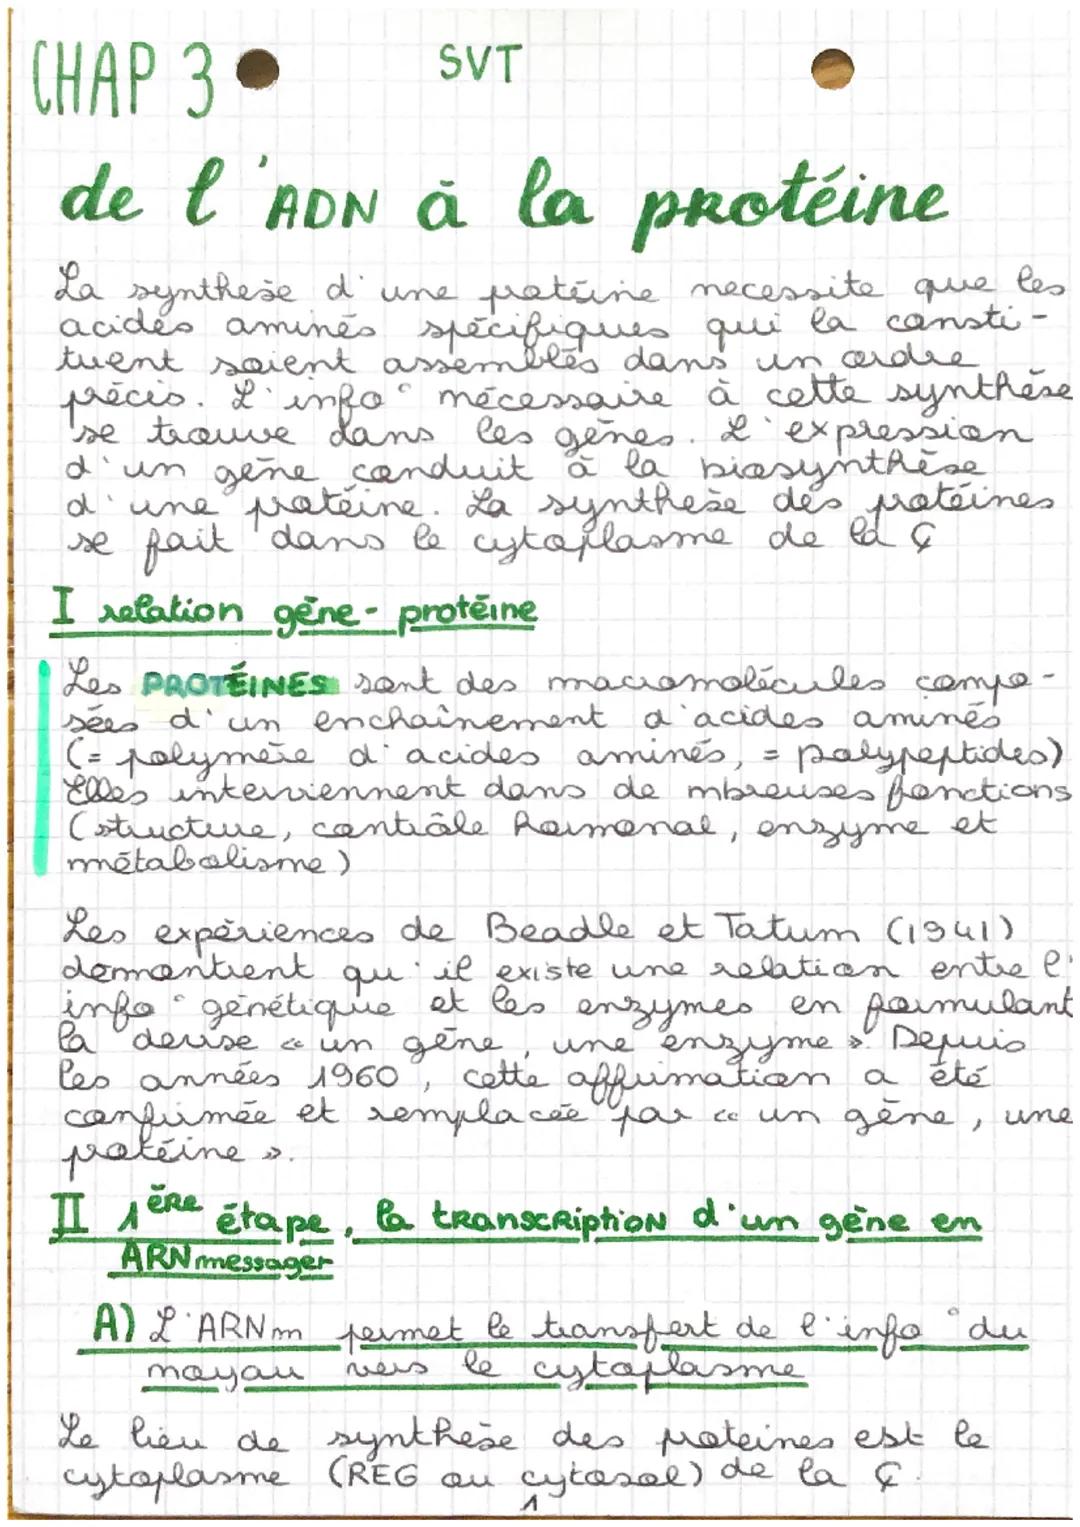 CHAP 3
SVT
de l'ADN à la protéine
La synthèse d'une protéine necessite que les
acides aminés spécifiques qui la consti-
tuent soient assemblés dans un ordre
précis. L'info° nécessaire à cette synthèse
se trouve dans les gènes. L'expression
d'un gène conduit à la biosynthèse
d'une protéine. La synthèse des protéines
se fait dans le cytoplasme de la Ç
I relation gène-protéine
Les PROTÉINES sont des macromolécules compo-
sées d'un enchaînement d'acides aminés
(= polymère d'acides aminés, = polypeptides)
Elles interviennent dans de nbreuses fonctions
(structure, contrôle hormonal, enzyme et
métabolisme)
Les expériences de Beadle et Tatum (1941)
démontrent qu'il existe une relation entre l'
info° génétique et les enzymes en formulant
la devise « un gène, une enzyme ». Depuis
les années 1960, cette affirmation a été
confirmée et remplacée par « un gène, une
protéine ».
II 1ÈRE étape, la transcription d'un gène en
ARN messager
A) L'ARNm permet le transfert de l'info° du
noyau vers le cytoplasme
Le lieu de synthèse des proteines est le
cytoplasme (REG ou cytosol) de la Ç.
1